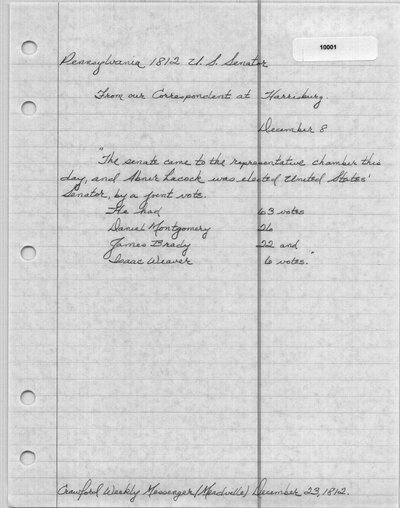 10001
Pennsylvania 1812 U.S. Senator
From our Correspondent at Harrisburg.
December 8
"The senate came to the representative chamber this
day, and Abner Lacock was elected United States'
Senator, by a joint vote.
He had 63 votes
Daniel Montgomery 26
James Brady 22 and
Isaac Weaver 6 votes."
Crawford Weekly Messenger (Meadville) December 23, 1812.